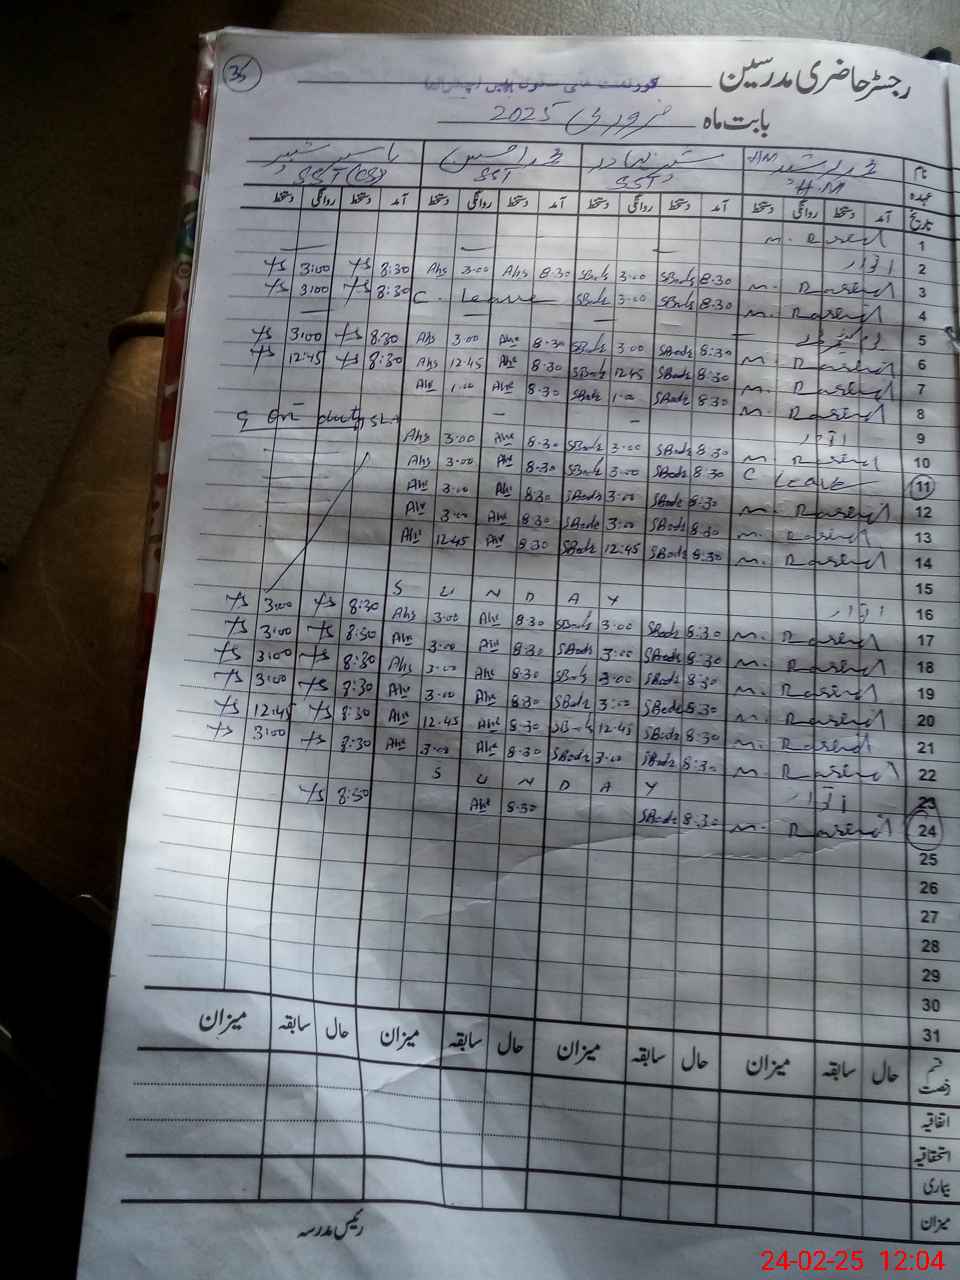 35
رجسٹر حاضری مدرسین
بابت ماہ فروری 2025
نام
عہدہ H.M SST SST SST(CS)
تاریخ آمد دستخط روانگی دستخط آمد دستخط روانگی دستخط آمد دستخط روانگی دستخط آمد دستخط روانگی دستخط
1 M. Rasend
2 اتوار
3 M. Rasend 8:30 SBadr 3:00 SBadr 8:30 Ahs 3:00 Ahs 8:30 YS 3:00 YS
4 M. Rasend 8:30 SBadr 3:00 SBadr C. Leave 8:30 YS 3:00 YS
5
6 M. Rasend 8:30 SBadr 3:00 SBadr 8:30 Ahs 3:00 Ahs 8:30 YS 3:00 YS
7 M. Rasend 8:30 SBadr 12:45 SBadr 8:30 Ahs 12:45 Ahs 8:30 YS 12:45 YS
8 M. Rasend 8:30 SBadr 1:00 SBadr 8:30 Ahs 1:00 Ahs
9 اتوار on duty
10 M. Rasend 8:30 SBadr 3:00 SBadr 8:30 Ahs 3:00 Ahs
11 C Leave 8:30 SBadr 3:00 SBadr 8:30 Ahs 3:00 Ahs
12 M. Rasend 8:30 SBadr 3:00 SBadr 8:30 Ahs 3:00 Ahs
13 M. Rasend 8:30 SBadr 3:00 SBadr 8:30 Ahs 3:00 Ahs
14 M. Rasend 8:30 SBadr 12:45 SBadr 8:30 Ahs 12:45 Ahs
15
16 اتوار S U N D A Y
17 M. Rasend 8:30 SBadr 3:00 SBadr 8:30 Ahs 3:00 Ahs 8:30 YS 3:00 YS
18 M. Rasend 8:30 SBadr 3:00 SBadr 8:30 Ahs 3:00 Ahs 8:30 YS 3:00 YS
19 M. Rasend 8:30 SBadr 3:00 SBadr 8:30 Ahs 3:00 Ahs 8:30 YS 3:00 YS
20 M. Rasend 8:30 SBadr 3:00 SBadr 8:30 Ahs 3:00 Ahs 8:30 YS 3:00 YS
21 M. Rasend 8:30 SBadr 12:45 SBadr 8:30 Ahs 12:45 Ahs 8:30 YS 12:45 YS
22 M. Rasend 8:30 SBadr 3:00 SBadr 8:30 Ahs 3:00 Ahs 8:30 YS 3:00 YS
23 اتوار S U N D A Y
24 M. Rasend 8:30 SBadr 8:30 Ahs 8:30 YS
25
26
27
28
29
30
31
قسم رخصت حال سابقہ میزان حال سابقہ میزان حال سابقہ میزان حال سابقہ میزان
اتفاقیہ
استحقاقیہ
بیماری
میزان
رئیس مدرسہ
24-02-25 12:04